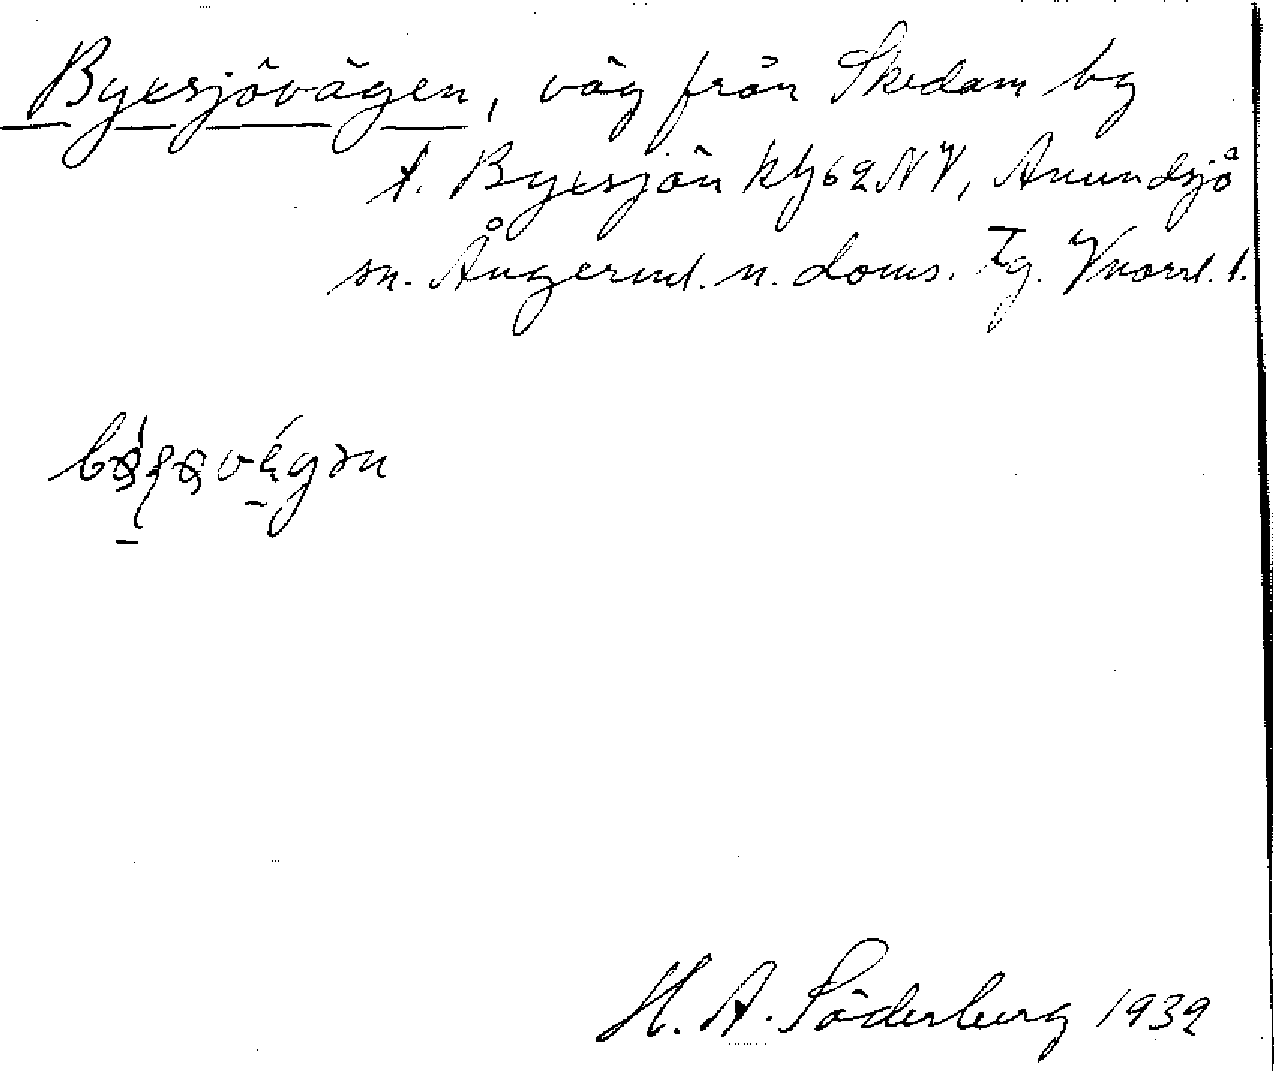 Byxsjövägen, väg från Skedom by
t. Byxsjön kbl 62 NV, Anundsjö
sn. Ångerml. n. doms. Tg. Vnorrl. l.
H. A. Söderberg 1932